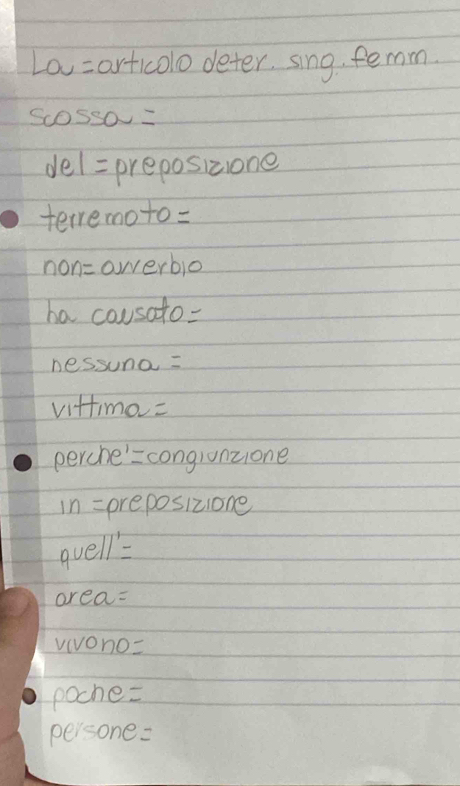 La = articolo deter. sing. femm.
scossa =
del = preposizione
terremoto =
non = avverbio
ha causato =
nessuna =
vittima =
perche' = congiunzione
in = preposizione
quell' =
area =
vivono =
poche =
persone =